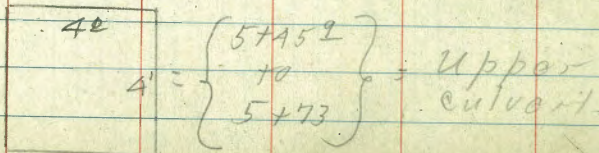 4º
4' = { 5+45º
to
5+73 } = Upper
culvert